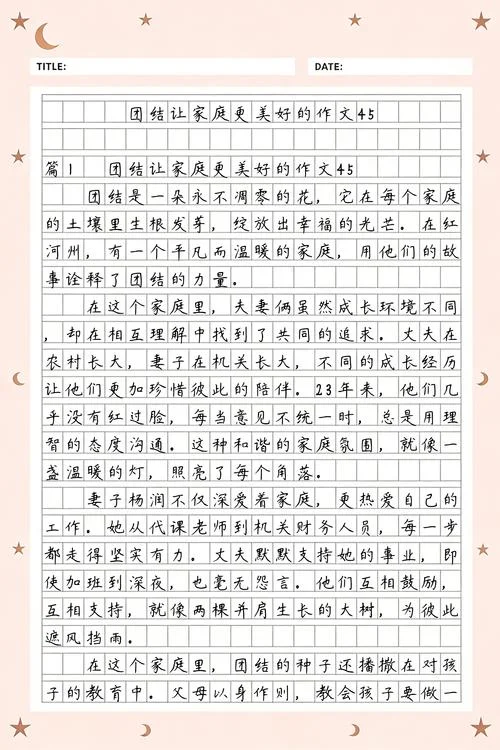 TITLE: DATE:
团结让家庭更美好的作文45
篇1 团结让家庭更美好的作文45
团结是一朵永不凋零的花，它在每个家庭
的土壤里生根发芽，绽放出幸福的光芒。在红
河州，有一个平凡而温暖的家庭，用他们的故
事诠释了团结的力量。
在这个家庭里，夫妻俩虽然成长环境不同
，却在相互理解中找到了共同的追求。丈夫在
农村长大，妻子在机关长大，不同的成长经历
让他们更加珍惜彼此的陪伴。23年来，他们几
乎没有红过脸，每当意见不统一时，总是用理
智的态度沟通。这种和谐的家庭氛围，就像一
盏温暖的灯，照亮了每个角落。
妻子杨润不仅深爱着家庭，更热爱自己的
工作。她从代课老师到机关财务人员，每一步
都走得坚实有力。丈夫默默支持她的事业，即
使加班到深夜，也毫无怨言。他们互相鼓励，
互相支持，就像两棵并肩生长的大树，为彼此
遮风挡雨。
在这个家庭里，团结的种子还播撒在对孩
子的教育中。父母以身作则，教会孩子要做一